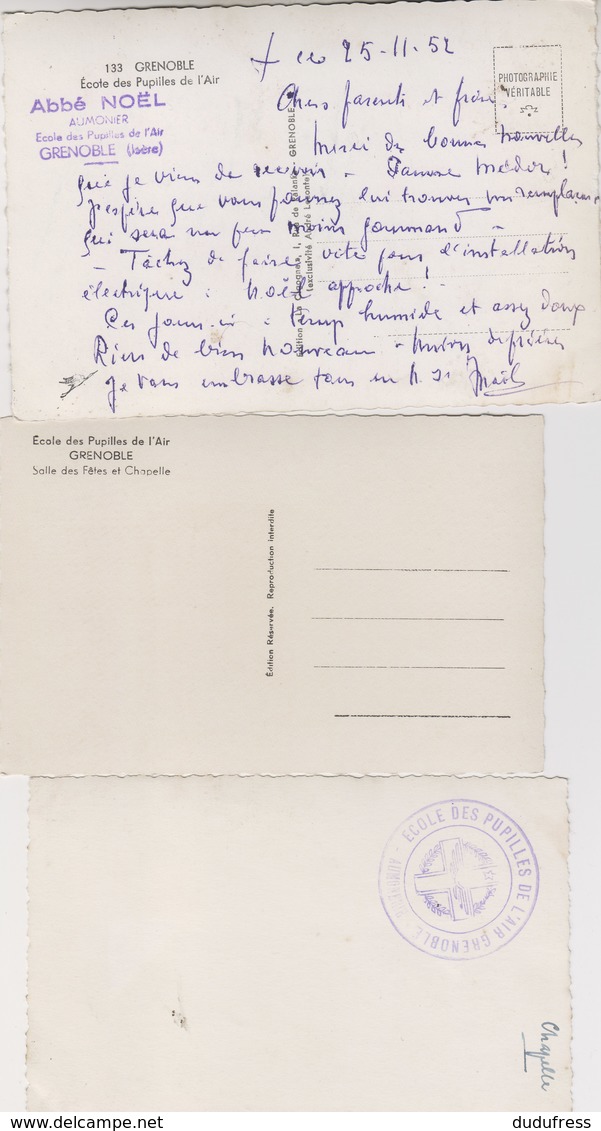 133 GRENOBLE
École des Pupilles de l'Air
Abbé NOËL
AUMONIER
Ecole des Pupilles de l'Air
GRENOBLE (Isère)
+ ce 25-11-52
PHOTOGRAPHIE
VÉRITABLE
Chers parents et frère,
Merci des bonnes nouvelles
que je viens de recevoir - Pauvre Médor !
J'espère que vous pourrez lui trouver un remplaçant
qui sera un peu moins gourmand -
- Tâchez de faire vite pour l'installation
électrique : Noël approche !
Ces jours-ci : temps humide et assez doux
Rien de bien nouveau - Union de prières
Je vous embrasse tous en N. S. Noël
GRENOBLE
(exclusivité André Leconte)
École des Pupilles de l'Air
GRENOBLE
Salle des Fêtes et Chapelle
Édition Réservée. Reproduction interdite
ÉCOLE DES PUPILLES DE L'AIR GRENOBLE
Chapelle
dudufress